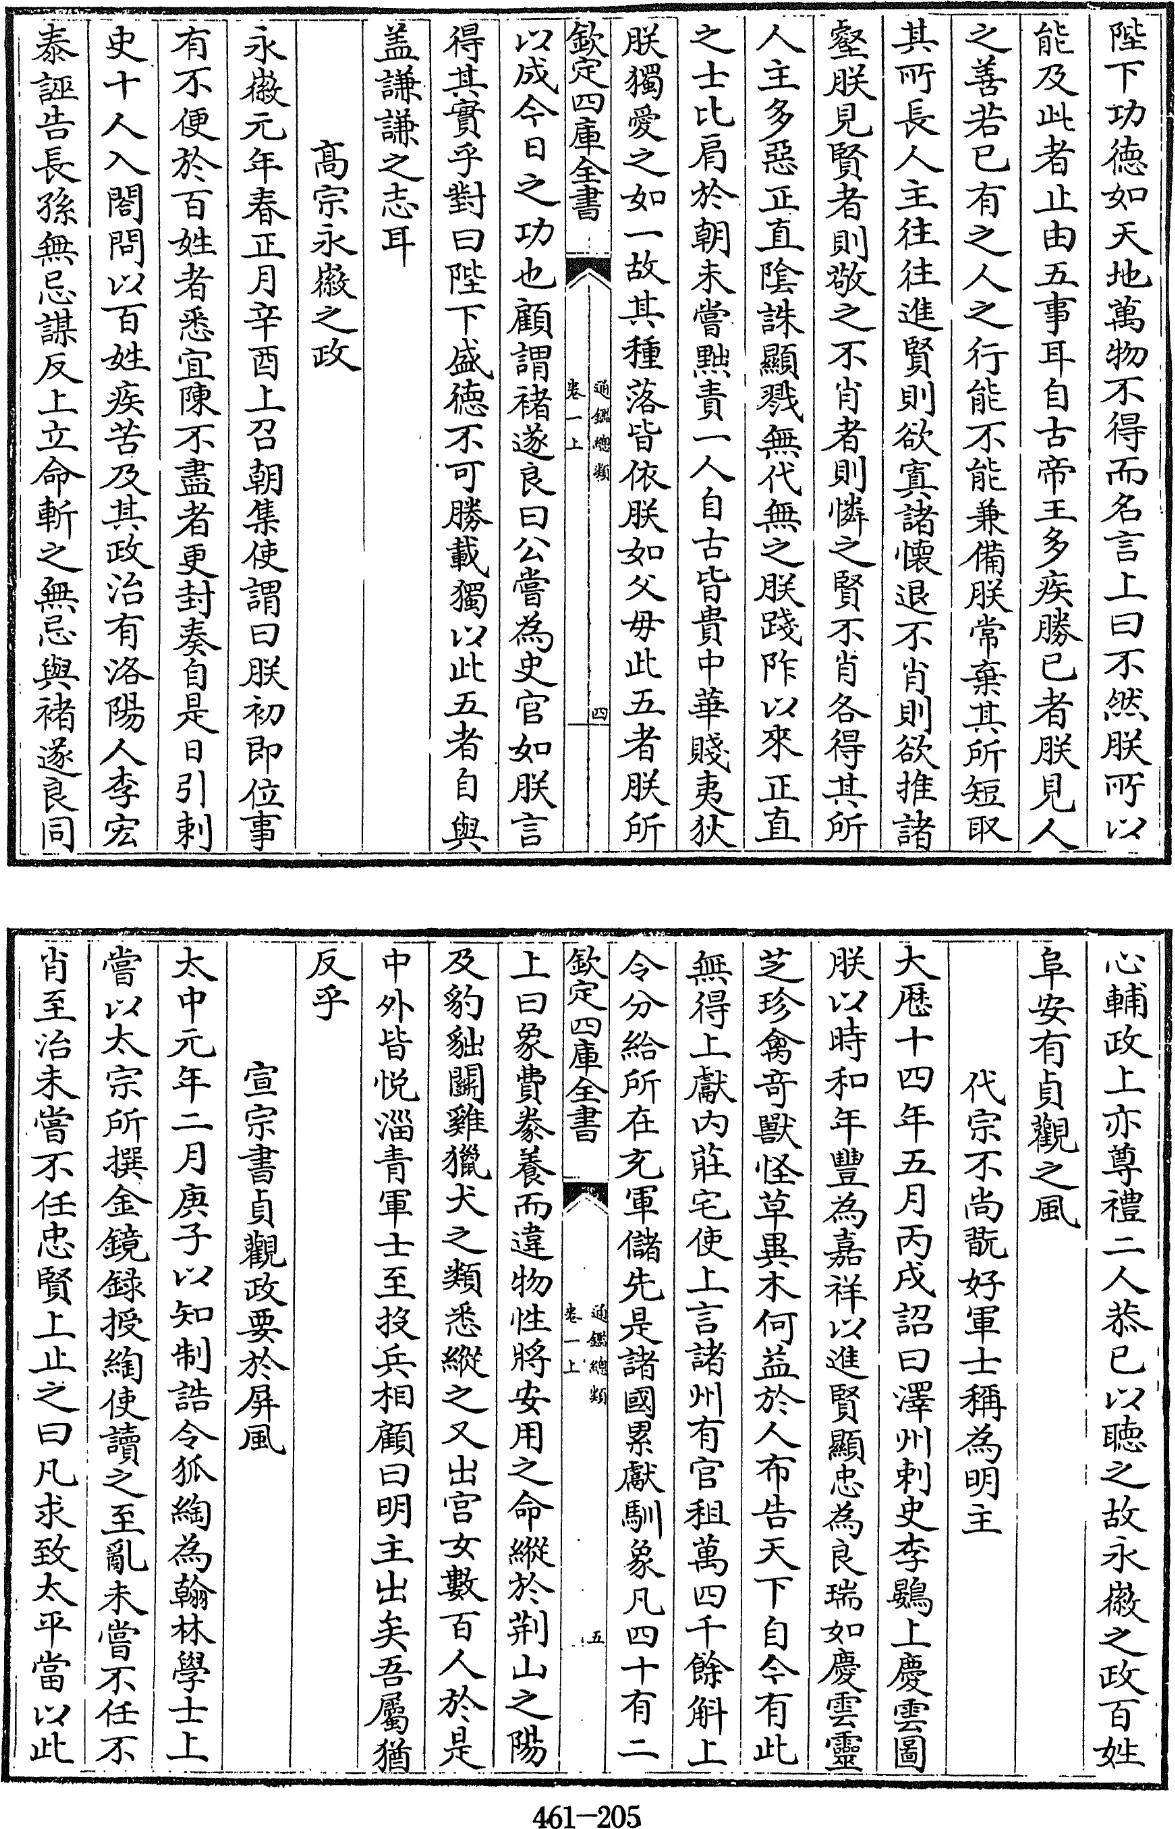 陛下功德如天地萬物不得而名言上曰不然朕所以
能及此者止由五事耳自古帝王多疾勝已者朕見人
之善若已有之人之行能不能兼備朕常棄其所短取
其所長人主往往進賢則欲寘諸懷退不肖則欲推諸
壑朕見賢者則敬之不肖者則憐之賢不肖各得其所
人主多惡正直陰誅顯戮無代無之朕踐阼以來正直
之士比肩於朝未嘗黜責一人自古皆貴中華賤夷狄
朕獨愛之如一故其種落皆依朕如父母此五者朕所
欽定四庫全書
通鑑總類
卷一上
四
以成今日之功也顧謂褚遂良曰公嘗為史官如朕言
得其實乎對曰陛下盛德不可勝載獨以此五者自與
盖謙謙之志耳
高宗永徽之政
永徽元年春正月辛酉上召朝集使謂曰朕初即位事
有不便於百姓者悉宜陳不盡者更封奏自是日引刺
史十人入閤問以百姓疾苦及其政治有洛陽人李宏
泰誣告長孫無忌謀反上立命斬之無忌與褚遂良同
心輔政上亦尊禮二人恭已以聽之故永徽之政百姓
阜安有貞觀之風
代宗不尚翫好軍士稱為明主
大厯十四年五月丙戌詔曰澤州刺史李鷃上慶雲圖
朕以時和年豐為嘉祥以進賢顯忠為良瑞如慶雲靈
芝珍禽竒獸怪草異木何益於人布告天下自今有此
無得上獻内莊宅使上言諸州有官租萬四千餘斛上
令分給所在充軍儲先是諸國累獻馴象凡四十有二
欽定四庫全書
通鑑總類
卷一上
五
上曰象費豢養而違物性將安用之命縱於荆山之陽
及豹貀鬭雞獵犬之類悉縱之又出宫女數百人於是
中外皆悦淄青軍士至投兵相顧曰明主出矣吾屬猶
反乎
宣宗書貞觀政要於屏風
太中元年二月庚子以知制誥令狐綯為翰林學士上
嘗以太宗所撰金鏡録授綯使讀之至亂未嘗不任不
肖至治未嘗不任忠賢上止之曰凡求致太平當以此
461-205